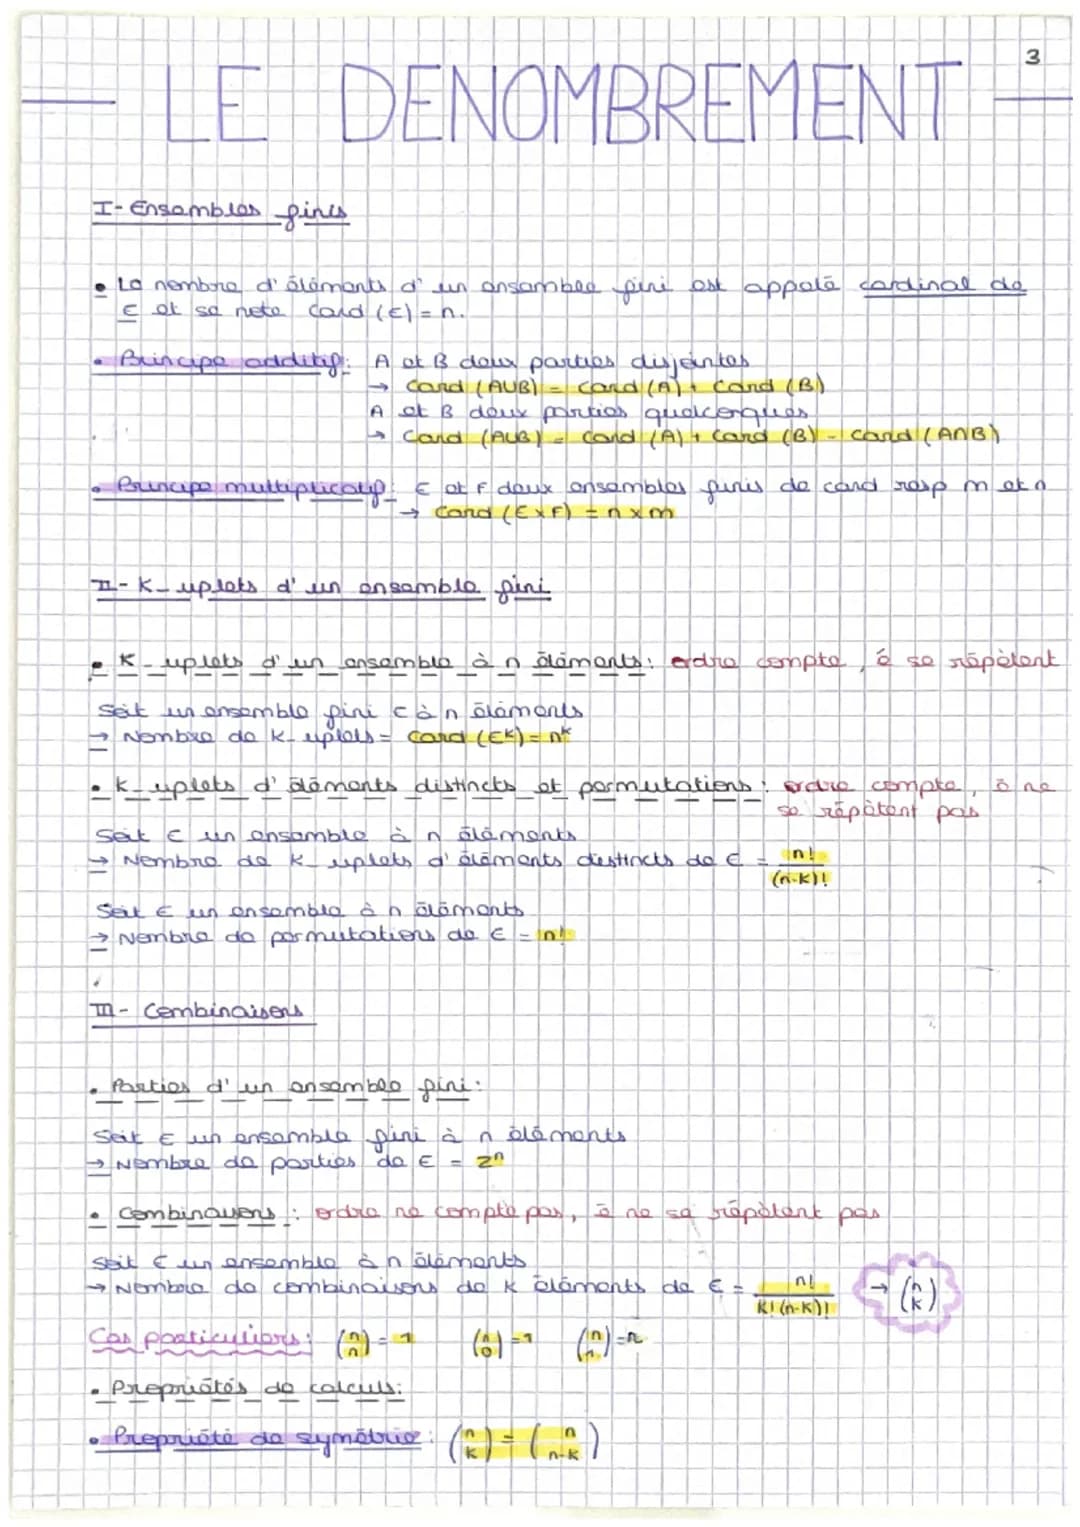 3
LE DENOMBREMENT
I- Ensembles finis
• Le nombre d'éléments d'un ensemble fini est appelé cardinal de
E et se note Card (E) = n.
• Principe additif : A et B deux parties disjointes
→ Card (AUB) = Card (A) + Card (B)
A et B deux parties quelconques
→ Card (AUB) = Card (A) + Card (B) - Card (A∩B)
• Principe multiplicatif : E et F deux ensembles finis de card resp m et n
→ Card (E x F) = n x m
II- K-uplets d'un ensemble fini
• K-uplets d'un ensemble à n éléments : ordre compte, é se répètent
Soit un ensemble fini C à n éléments
→ Nombre de K-uplets = Card (E^k) = n^k
• K-uplets d'éléments distincts et permutations : ordre compte, é ne
se répètent pas
Soit E un ensemble à n éléments
→ Nombre de K-uplets d'éléments distincts de E = n! / (n-K)!
Soit E un ensemble à n éléments
→ Nombre de permutations de E = n!
III- Combinaisons
• Parties d'un ensemble fini :
Soit E un ensemble fini à n éléments
→ Nombre de parties de E = 2^n
• Combinaisons : ordre ne compte pas, é ne se répètent pas
Soit E un ensemble à n éléments
→ Nombre de combinaisons de K éléments de E = n! / K!(n-K)! → (n K)
Cas particuliers : (n n) = 1 (n 0) = 1 = n
• Propriétés de calculs :
• Propriété de symétrie : (n K) = (n n-K)